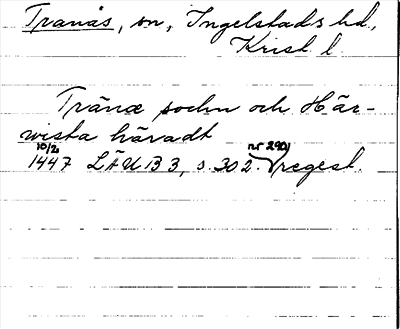 Tranås, sn, Ingelstads hd,
Krist. l.
Tränæ sochn och Här-
wista häradt
10/2 1447 LÄUB 3, s. 302. nr 290 regest.